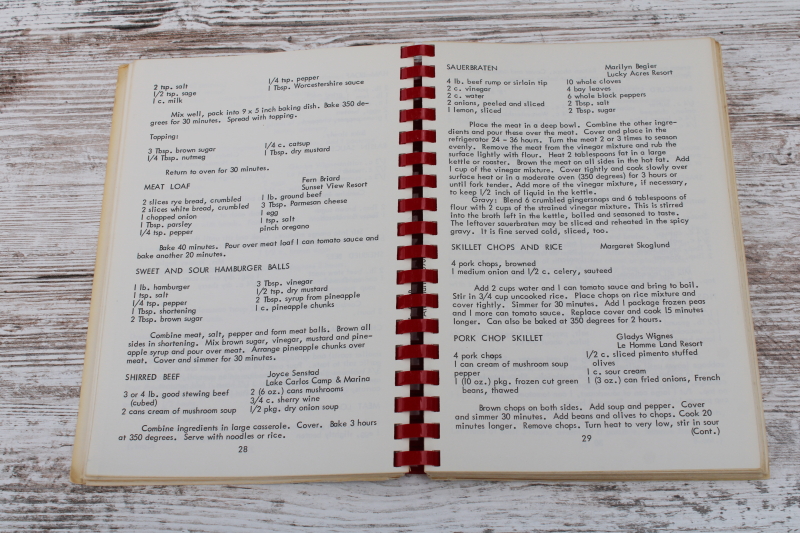 2 tsp. salt 1/4 tsp. pepper
1/2 tsp. sage 1 Tbsp. Worcestershire sauce
1 c. milk
Mix well, pack into 9 x 5 inch baking dish. Bake 350 de-
grees for 30 minutes. Spread with topping.
Topping:
3 Tbsp. brown sugar 1/4 c. catsup
1/4 Tbsp. nutmeg 1 Tbsp. dry mustard
Return to oven for 30 minutes.
Fern Briard
MEAT LOAF Sunset View Resort
2 slices rye bread, crumbled 1 lb. ground beef
2 slices white bread, crumbled 3 Tbsp. Parmesan cheese
1 chopped onion 1 egg
1 Tbsp. parsley 1 tsp. salt
1/4 tsp. pepper pinch oregano
Bake 40 minutes. Pour over meat loaf 1 can tomato sauce and
bake another 20 minutes.
SWEET AND SOUR HAMBURGER BALLS
1 lb. hamburger 3 Tbsp. vinegar
1 tsp. salt 1/2 tsp. dry mustard
1/4 tsp. pepper 2 Tbsp. syrup from pineapple
1 Tbsp. shortening 1 c. pineapple chunks
2 Tbsp. brown sugar
Combine meat, salt, pepper and form meat balls. Brown all
sides in shortening. Mix brown sugar, vinegar, mustard and pine-
apple syrup and pour over meat. Arrange pineapple chunks over
meat. Cover and simmer for 30 minutes.
SHIRRED BEEF Joyce Senstad
Lake Carlos Camp & Marina
3 or 4 lb. good stewing beef 2 (6 oz.) cans mushrooms
(cubed) 3/4 c. sherry wine
2 cans cream of mushroom soup 1/2 pkg. dry onion soup
Combine ingredients in large casserole. Cover. Bake 3 hours
at 350 degrees. Serve with noodles or rice.
28
SAUERBRATEN Marilyn Begier
Lucky Acres Resort
4 lb. beef rump or sirloin tip 10 whole cloves
2 c. vinegar 4 bay leaves
2 c. water 6 whole black peppers
2 onions, peeled and sliced 2 Tbsp. salt
1 lemon, sliced 2 Tbsp. sugar
Place the meat in a deep bowl. Combine the other ingre-
dients and pour these over the meat. Cover and place in the
refrigerator 24 - 36 hours. Turn the meat 2 or 3 times to season
evenly. Remove the meat from the vinegar mixture and rub the
surface lightly with flour. Heat 2 tablespoons fat in a large
kettle or roaster. Brown the meat on all sides in the hot fat. Add
1 cup of the vinegar mixture. Cover tightly and cook slowly over
surface heat or in a moderate oven (350 degrees) for 3 hours or
until fork tender. Add more of the vinegar mixture, if necessary,
to keep 1/2 inch of liquid in the kettle.
Gravy: Blend 6 crumbled gingersnaps and 6 tablespoons of
flour with 2 cups of the strained vinegar mixture. This is stirred
into the broth left in the kettle, boiled and seasoned to taste.
The leftover sauerbraten may be sliced and reheated in the spicy
gravy. It is fine served cold, sliced, too.
SKILLET CHOPS AND RICE Margaret Skoglund
4 pork chops, browned
1 medium onion and 1/2 c. celery, sauteed
Add 2 cups water and 1 can tomato sauce and bring to boil.
Stir in 3/4 cup uncooked rice. Place chops on rice mixture and
cover tightly. Simmer for 30 minutes. Add 1 package frozen peas
and 1 more can tomato sauce. Replace cover and cook 15 minutes
longer. Can also be baked at 350 degrees for 2 hours.
PORK CHOP SKILLET Gladys Wignes
Le Homme Land Resort
4 pork chops 1/2 c. sliced pimento stuffed
1 can cream of mushroom soup olives
pepper 1 c. sour cream
1 (10 oz.) pkg. frozen cut green 1 (3 oz.) can fried onions, French
beans, thawed
Brown chops on both sides. Add soup and pepper. Cover
and simmer 30 minutes. Add beans and olives to chops. Cook 20
minutes longer. Remove chops. Turn heat to very low, stir in sour
(Cont.)
29